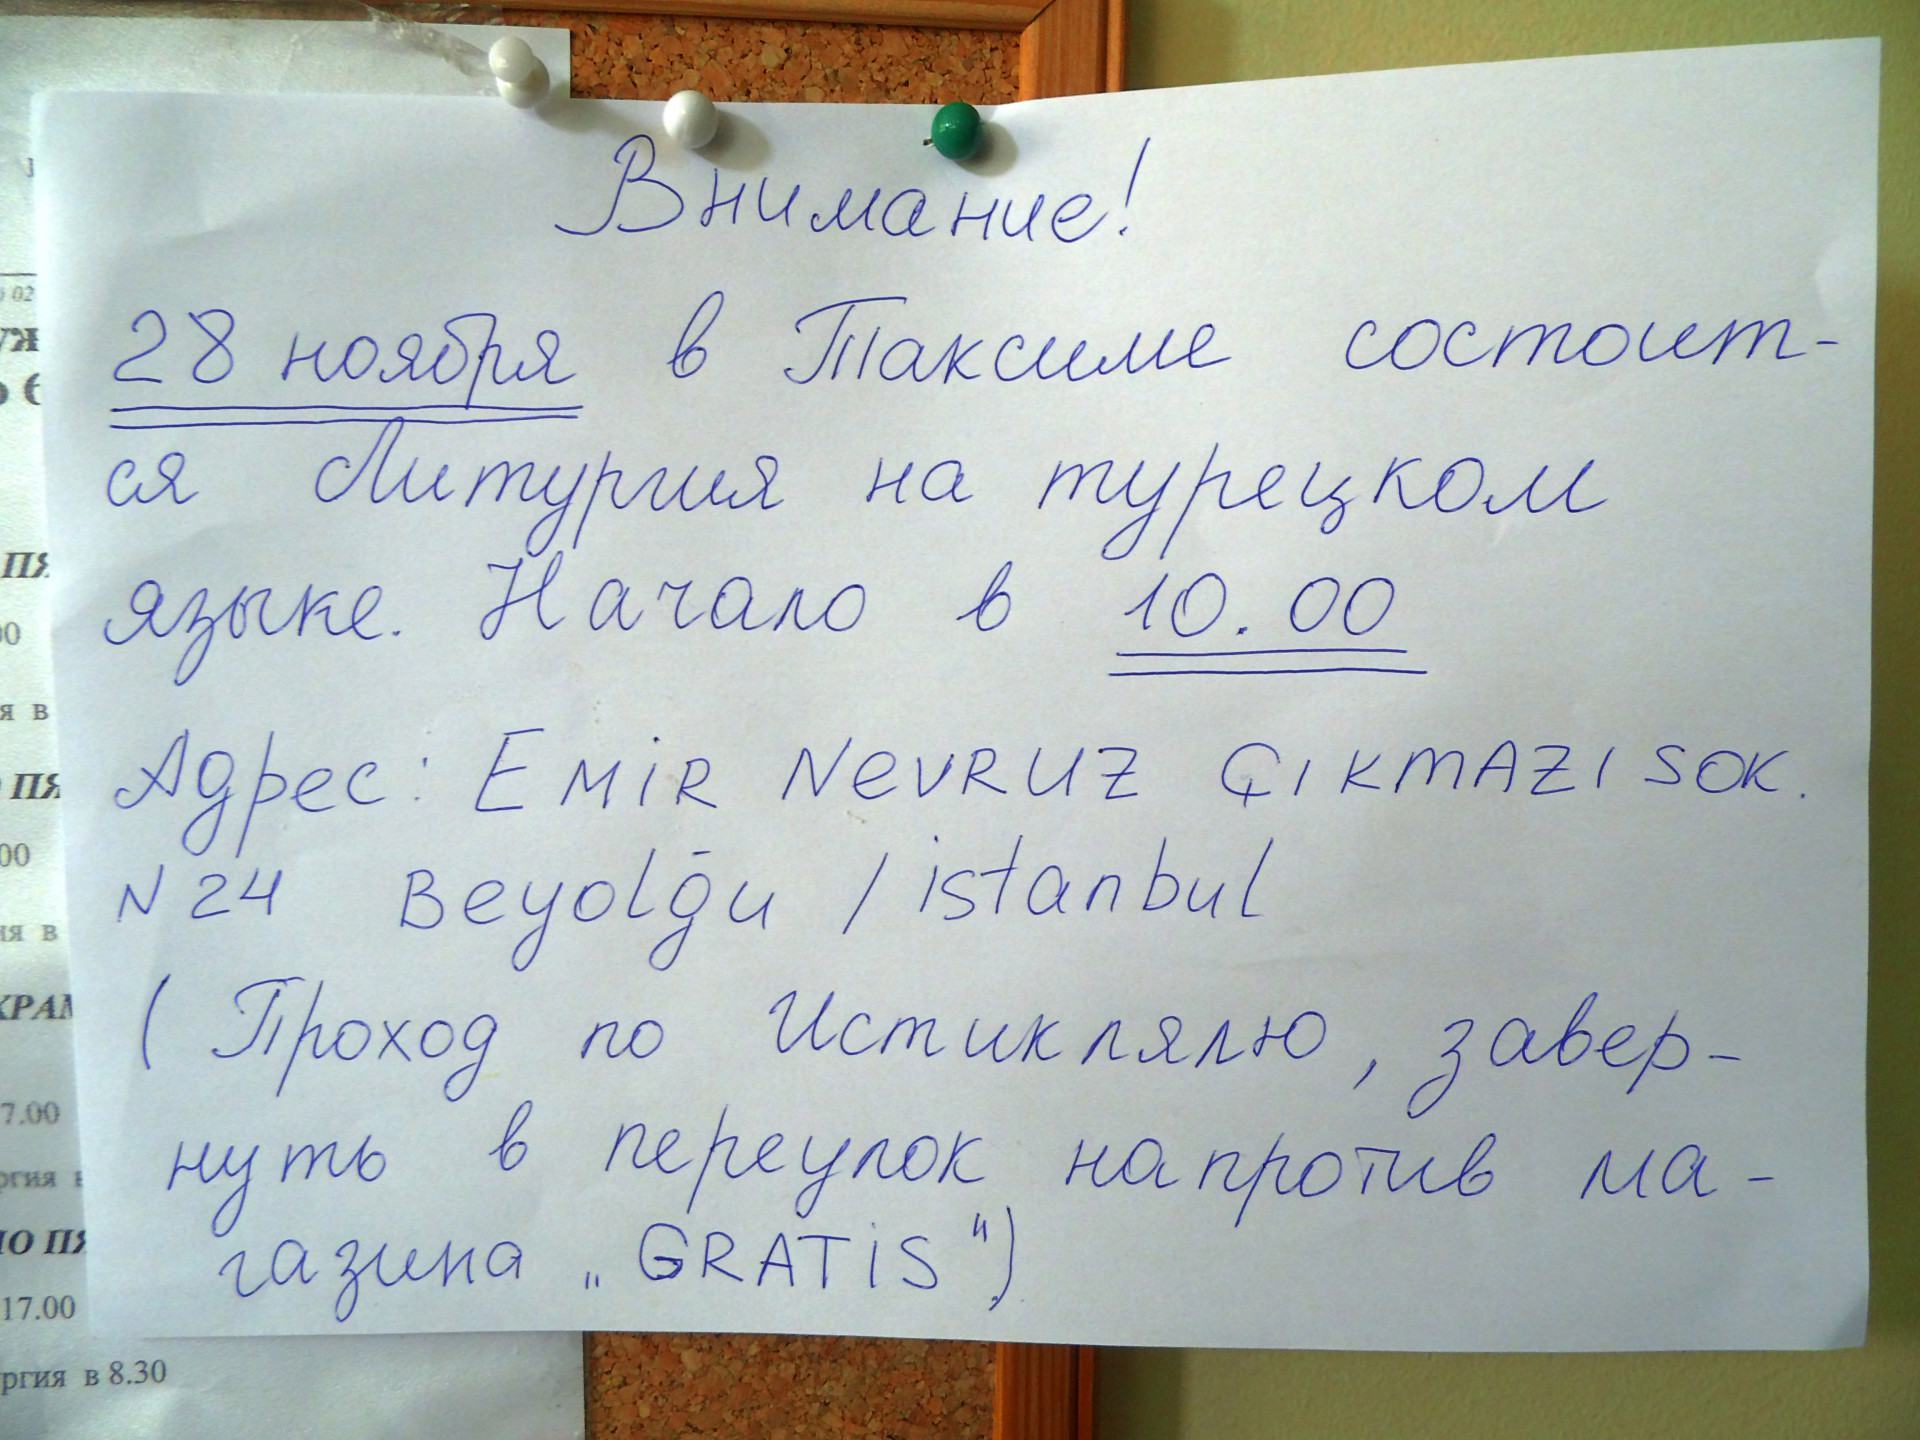 Внимание!
28 ноября в Таксиме состоит-
ся Литургия на турецком
языке. Начало в 10.00
Адрес: EMİR NEVRUZ ÇIKMAZI SOK.
N 24 Beyolğu / istanbul
( Проход по Истиклялю, завер-
нуть в переулок напротив ма-
газина „GRATİS")
02
ПЯ
00
я в
ПЯ
00
ия в
ХРАМ
7.00
ргия в
ПО ПЯ
17.00
ргия в 8.30